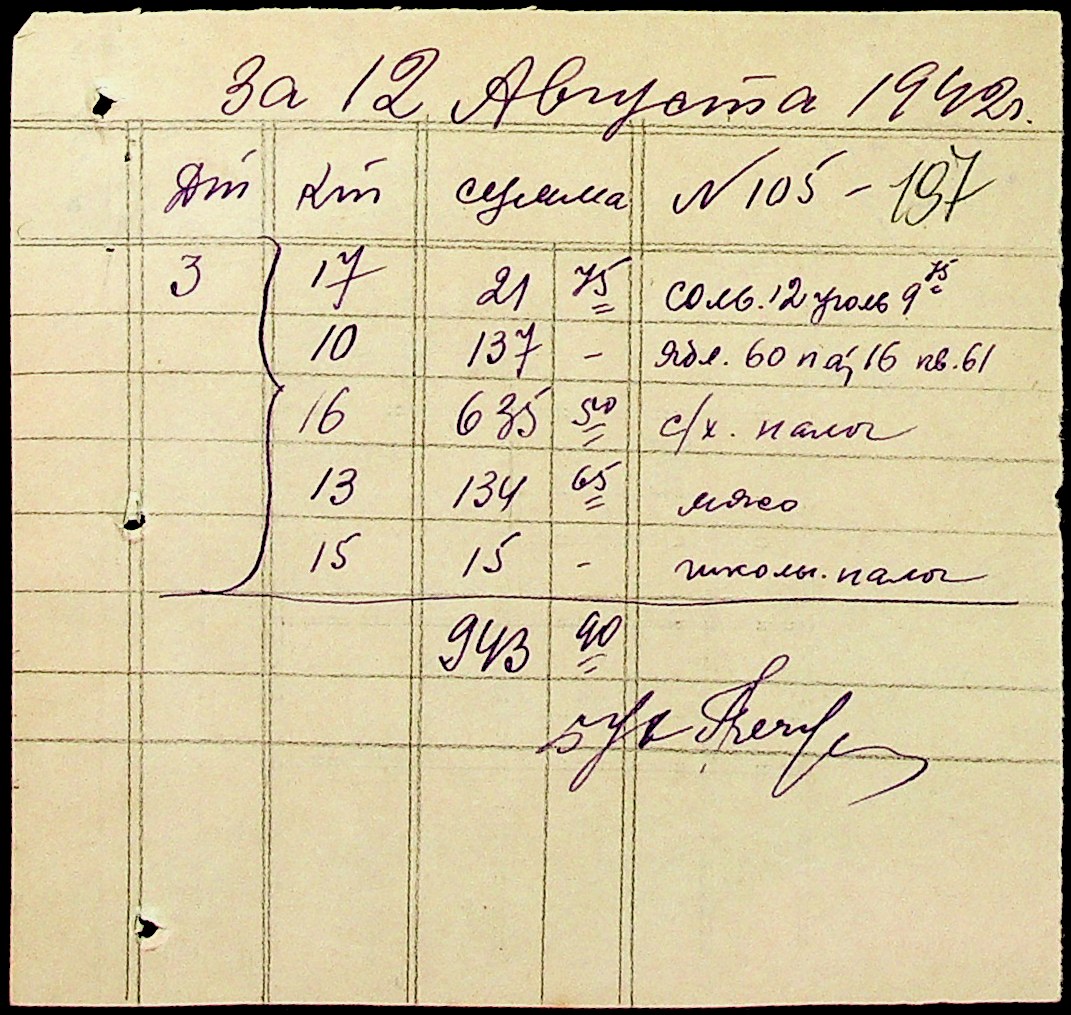 За 12 Августа 1942г.
Дт Кт сумма N 105 - 197
3 17 21 75 соль. 12 уголь 9 75
10 137 - ябл. 60 16 61
16 635 50 с/х. налог
13 134 65 мясо
15 15 - школьн. налог
943 90